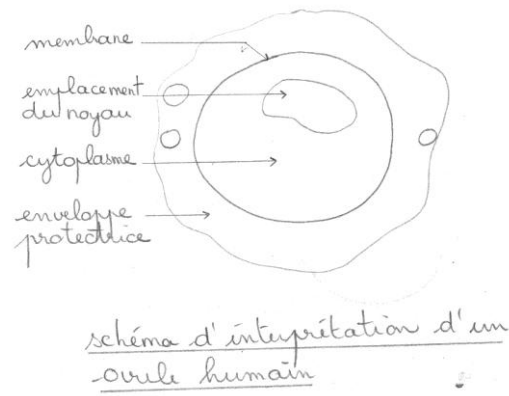 membrane
emplacement
du noyau
cytoplasme
enveloppe
protectrice
schéma d'interprétation d'un
ovule humain